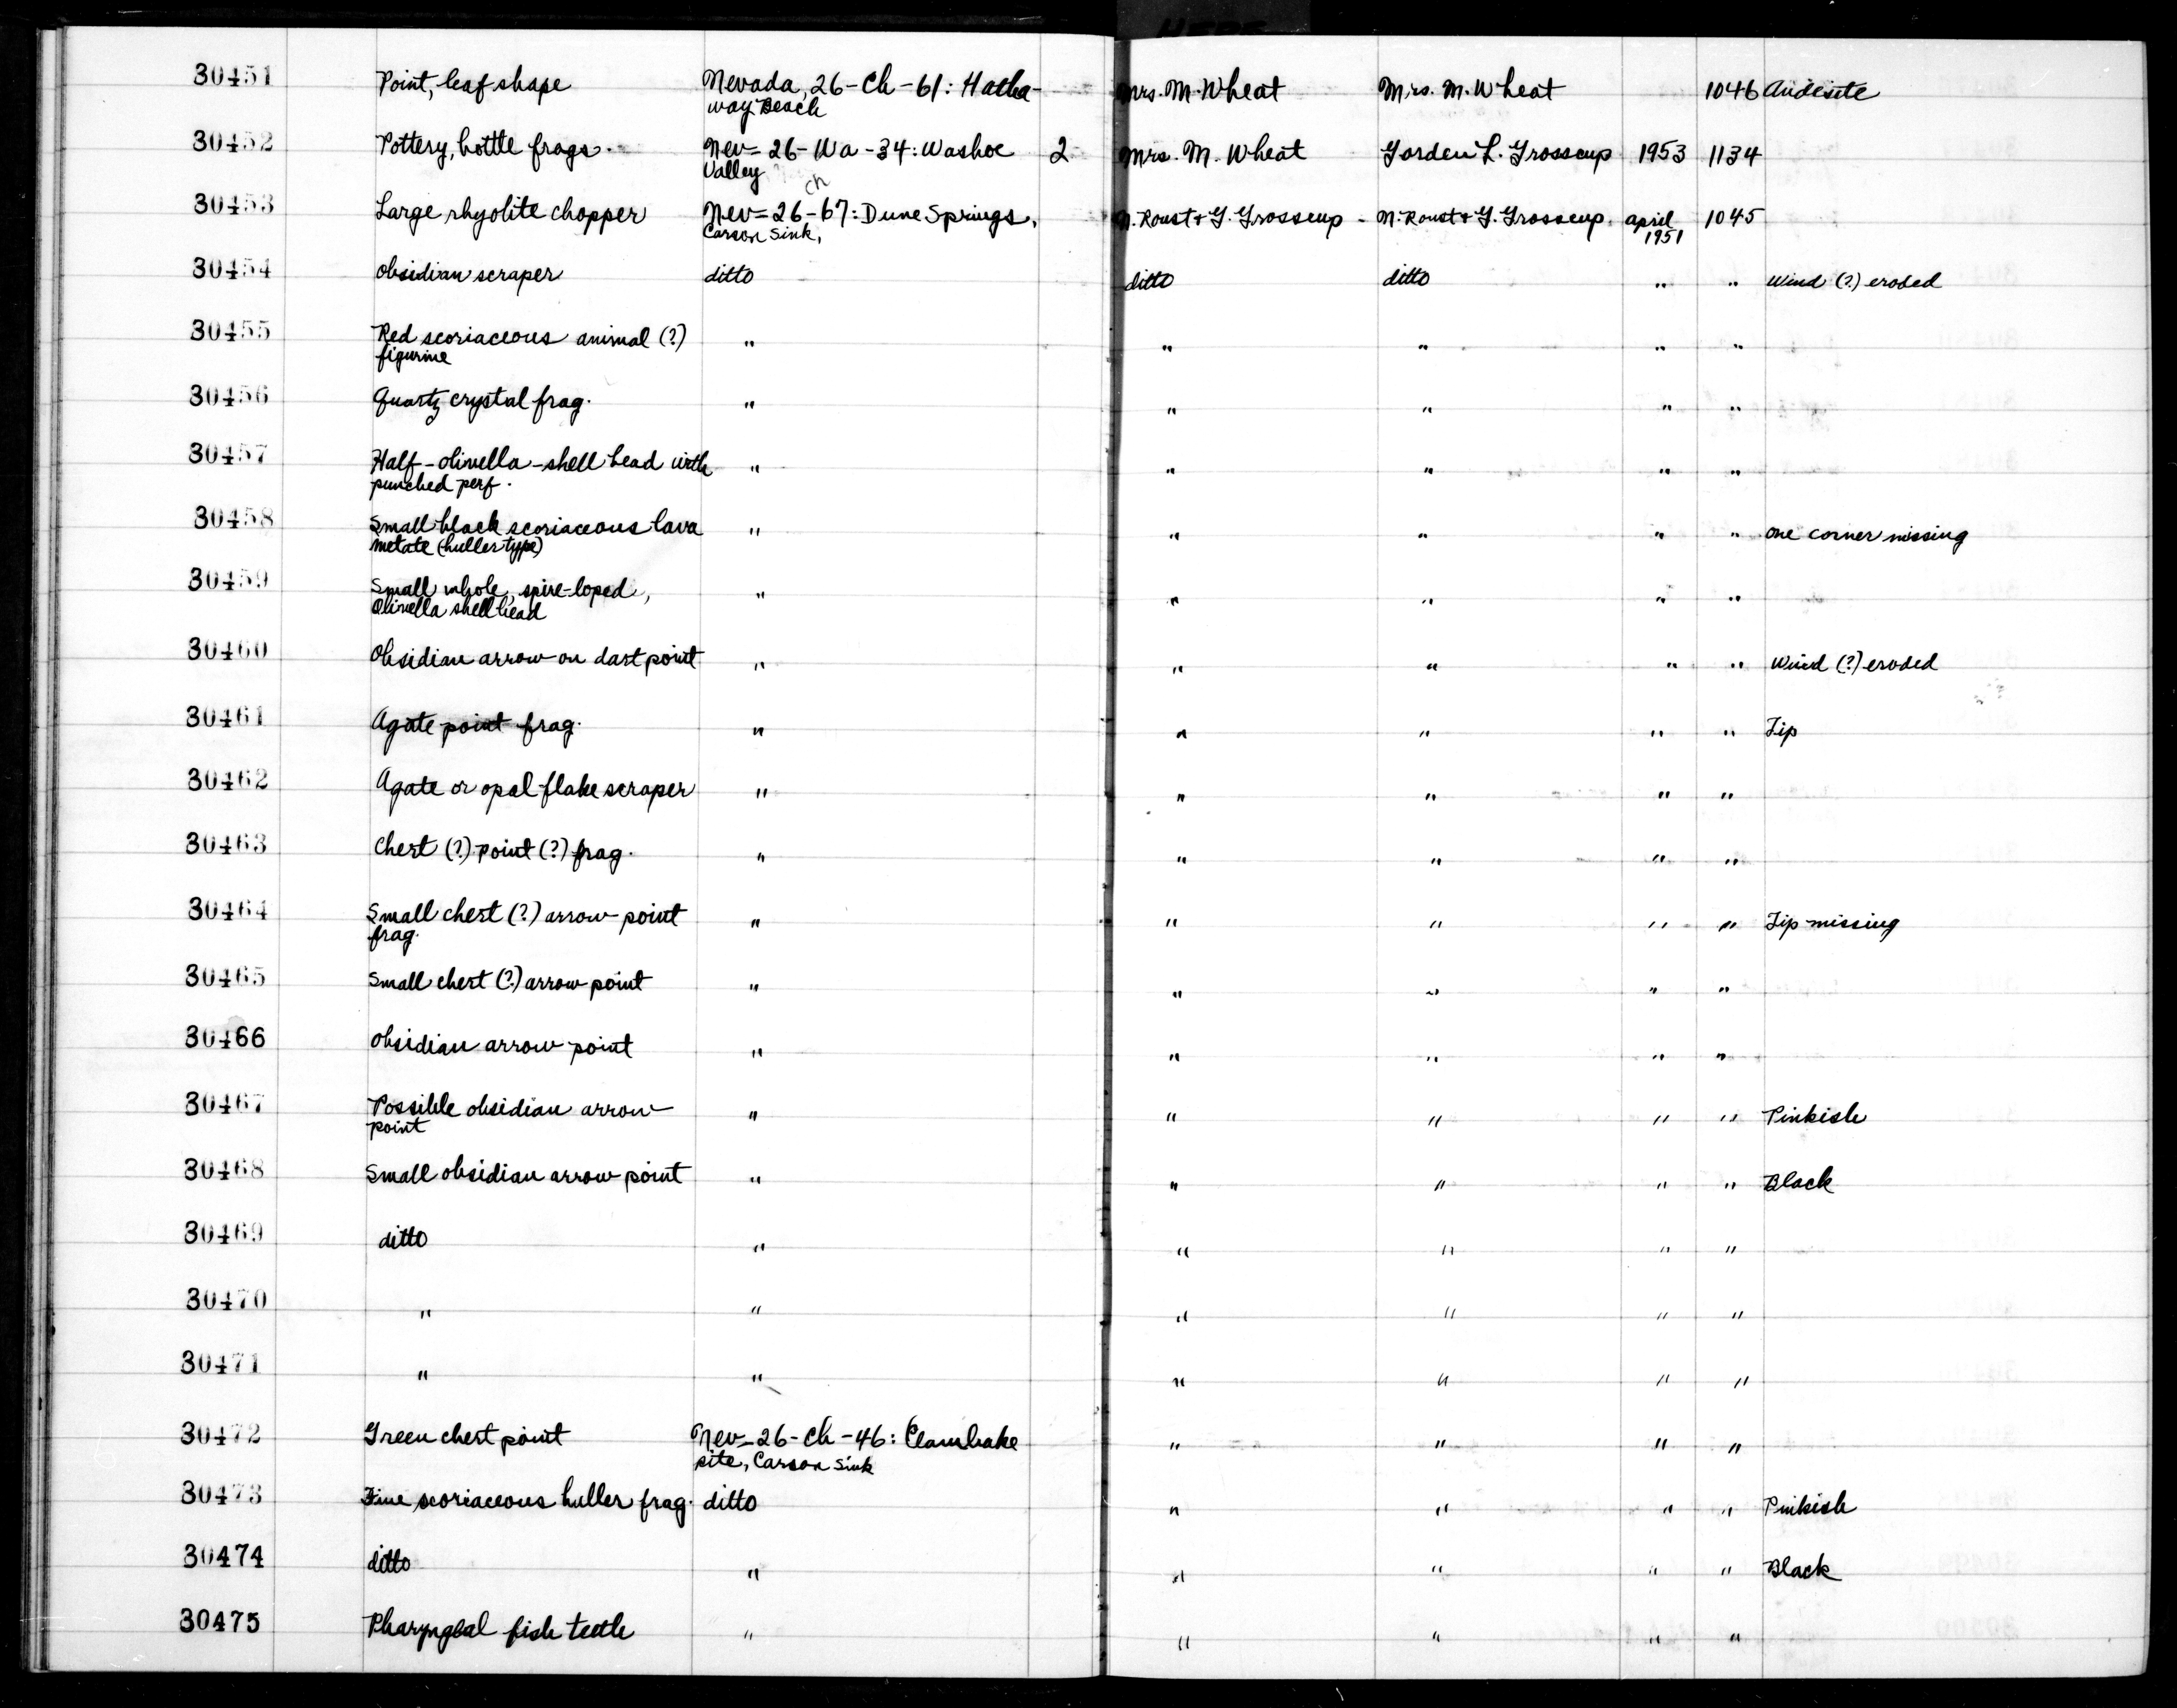 30451 Point, leaf shape Nevada, 26-Ch-61: Hatha- Mrs. M. Wheat Mrs. M. Wheat 1046 Andesite
way Beach
30452 Pottery, bottle frags. Nev= 26-Wa-34: Washoe 2 Mrs. M. Wheat Gorden L. Grosscup 1953 1134
Valley
ch
30453 Large rhyolite chopper Nev= 26-67: Dune Springs, N. Roust & G. Grosscup - N. Roust & G. Grosscup April 1045
Carson Sink, 1951
30454 Obsidian scraper ditto ditto ditto " " Wind (?) eroded
30455 Red scoriaceous animal (?) " " " " "
figurine
30456 Quartz crystal frag. " " " " "
30457 Half-olivella-shell bead with " " " " "
punched perf.
30458 Small black scoriaceous lava " " " " " one corner missing
metate (huller type)
30459 Small whole, spire-loped, " " " " "
Olivella shell bead
30460 Obsidian arrow or dart point " " " " " Wind (?) eroded
30461 Agate point frag. " " " " " Tip
30462 Agate or opal flake scraper " " " " "
30463 Chert (?) point (?) frag. " " " " "
30464 Small chert (?) arrow-point " " " " " Tip missing
frag.
30465 Small chert (?) arrow point " " " " "
30466 Obsidian arrow point " " " " "
30467 Possible obsidian arrow " " " " " Pinkish
point
30468 Small obsidian arrow point " " " " " Black
30469 ditto " " " " "
30470 " " " " " "
30471 " " " " " "
30472 Green chert point Nev= 26-Ch-46: Clambake " " " "
site, Carson Sink
30473 Fine scoriaceous huller frag. ditto " " " " Pinkish
30474 ditto " " " " " Black
30475 Pharyngeal fish teeth " " " " "